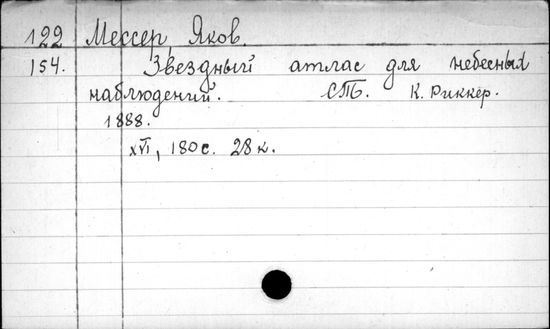 122 Мессер, Яков.
154. Звездный атлас для небесных
наблюдений. СПБ. К. Риккер.
1888.
XVI, 180 с. 28 к.